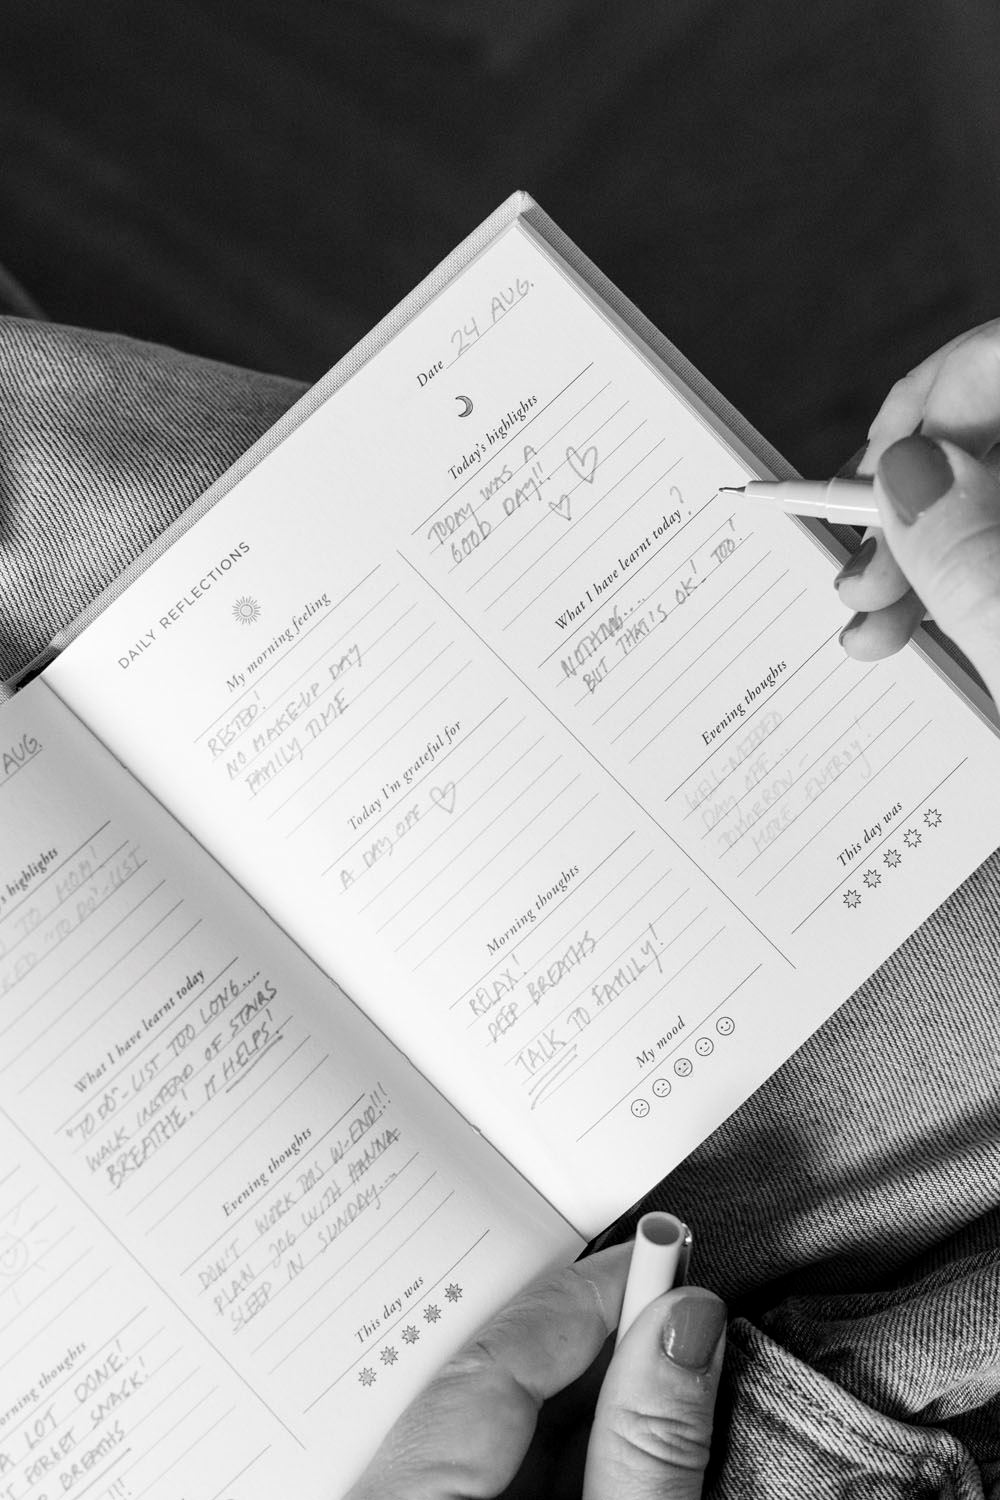 AUG.
's highlights
TO MOM!
"TO DO"-LIST
What I have learnt today
"TO DO"-LIST TOO LONG....
WALK INSTEAD OF STAIRS
BREATHE! IT HELPS!
Evening thoughts
DON'T WORK THIS W-END!!!
PLAN JOG WITH HANNA
SLEEP IN SUNDAY....
This day was
orning thoughts
A LOT DONE!
FORGET SNACK!
BREATHS
DAILY REFLECTIONS
My morning feeling
RESTED!
NO MAKE-UP DAY
FAMILY TIME
Today I'm grateful for
A DAY OFF ♡
Morning thoughts
RELAX!
DEEP BREATHS
TALK TO FAMILY!
My mood
Date 24 AUG.
Today's highlights
TODAY WAS A
GOOD DAY!! ♡ ♡
What I have learnt today ?
NOTHING....
BUT THAT'S OK! TOO!
Evening thoughts
WELL-NEEDED
DAY OFF...
TOMORROW -
MORE ENERGY!
This day was